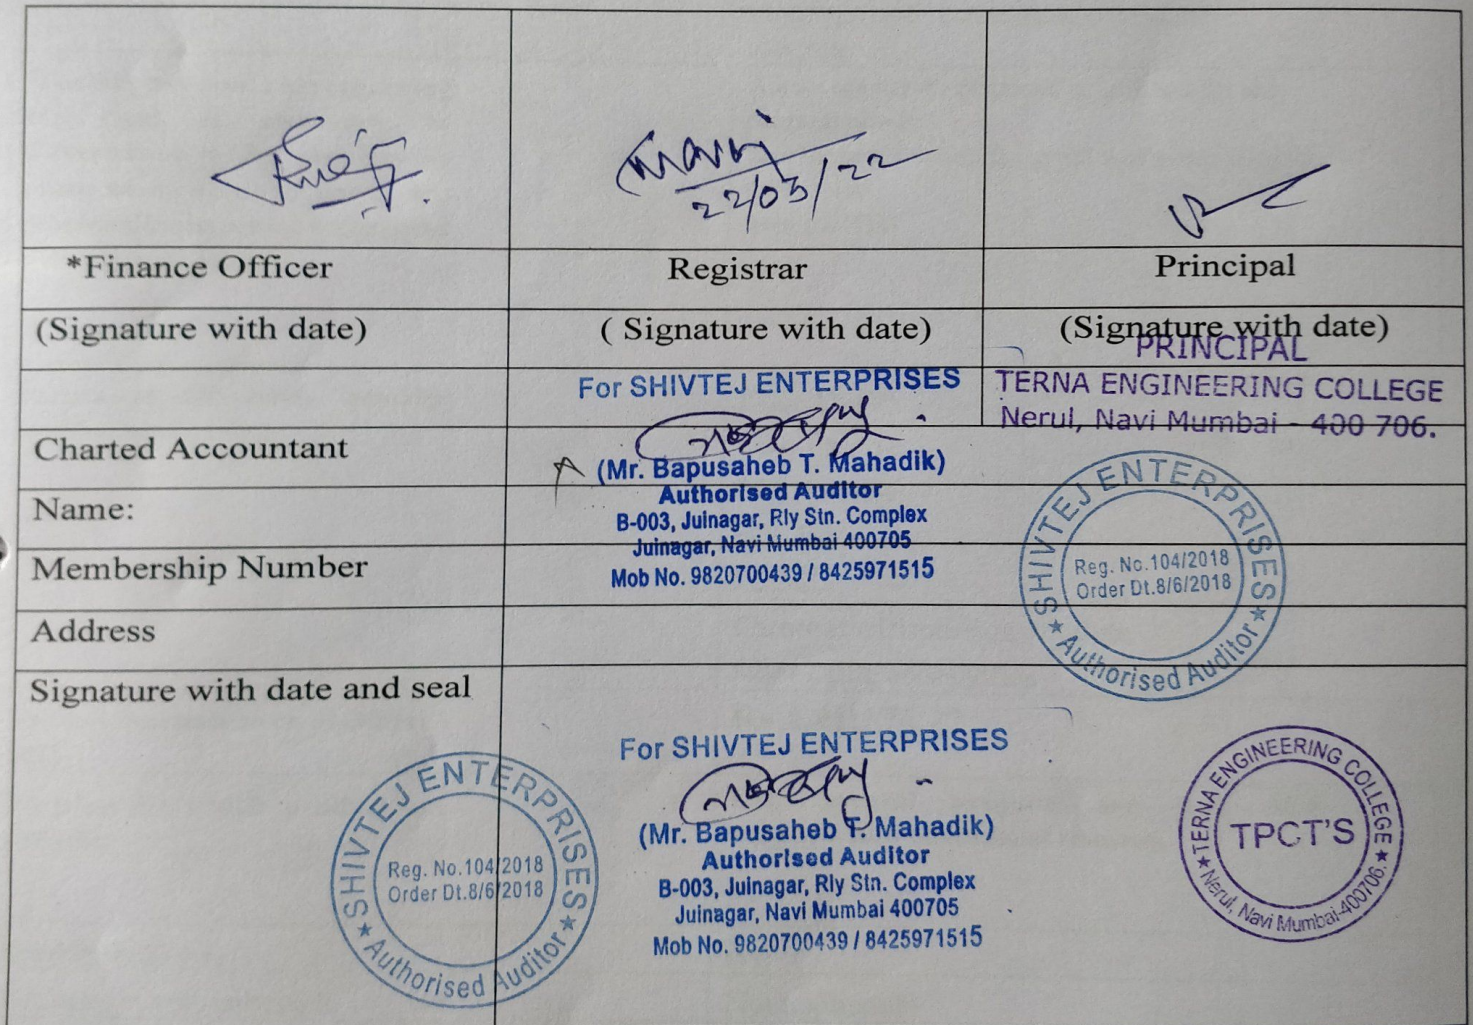 22/03/22
*Finance Officer
Registrar
Principal
(Signature with date)
( Signature with date)
(Signature with date)
PRINCIPAL
TERNA ENGINEERING COLLEGE
Nerul, Navi Mumbai - 400 706.
For SHIVTEJ ENTERPRISES
Charted Accountant
(Mr. Bapusaheb T. Mahadik)
Authorised Auditor
Name:
B-003, Juinagar, Rly Stn. Complex
Juinagar, Navi Mumbai 400705
Membership Number
Mob No. 9820700439 / 8425971515
SHIVTEJ ENTERPRISES
Reg. No.104/2018
Order Dt.8/6/2018
★ Authorised Auditor ★
Address
Signature with date and seal
SHIVTEJ ENTERPRISES
Reg. No.104/2018
Order Dt.8/6/2018
★ Authorised Auditor ★
For SHIVTEJ ENTERPRISES
(Mr. Bapusaheb T. Mahadik)
Authorised Auditor
B-003, Juinagar, Rly Stn. Complex
Juinagar, Navi Mumbai 400705
Mob No. 9820700439 / 8425971515
TERNA ENGINEERING COLLEGE
TPCT'S
★ Nerul, Navi Mumbai-400706. ★